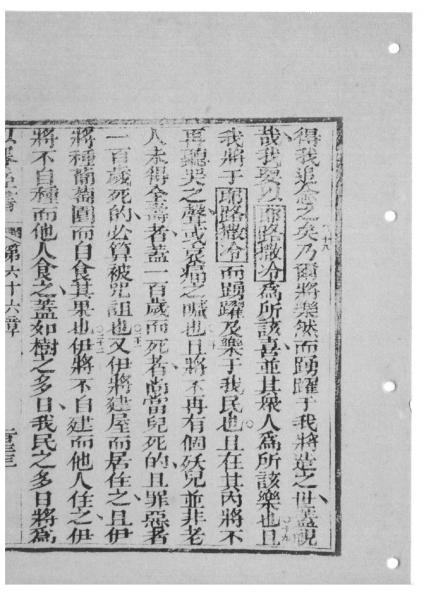 得我追念之矣〇十八乃爾將樂然而踴躍于我將造之世蓋視
哉我要以耶路撒冷爲所該喜並其衆人爲所該樂也〇十九且
我將于耶路撒冷而踴躍及樂于我民也且在其內將不
再聽哭之聲或哀痛之喊也且將不再有個妖兒並非老
人未得全壽者蓋一百歲而死者尚當兒死的且罪惡者
一百歲死的必算被咒詛也〇二十一又伊將建屋而居住之且伊
將種葡萄園而自食其果也〇二十二伊將不自建而他人住之伊
將不自種而他人食之蓋如樹之多日我民之多日將爲
第六十六章